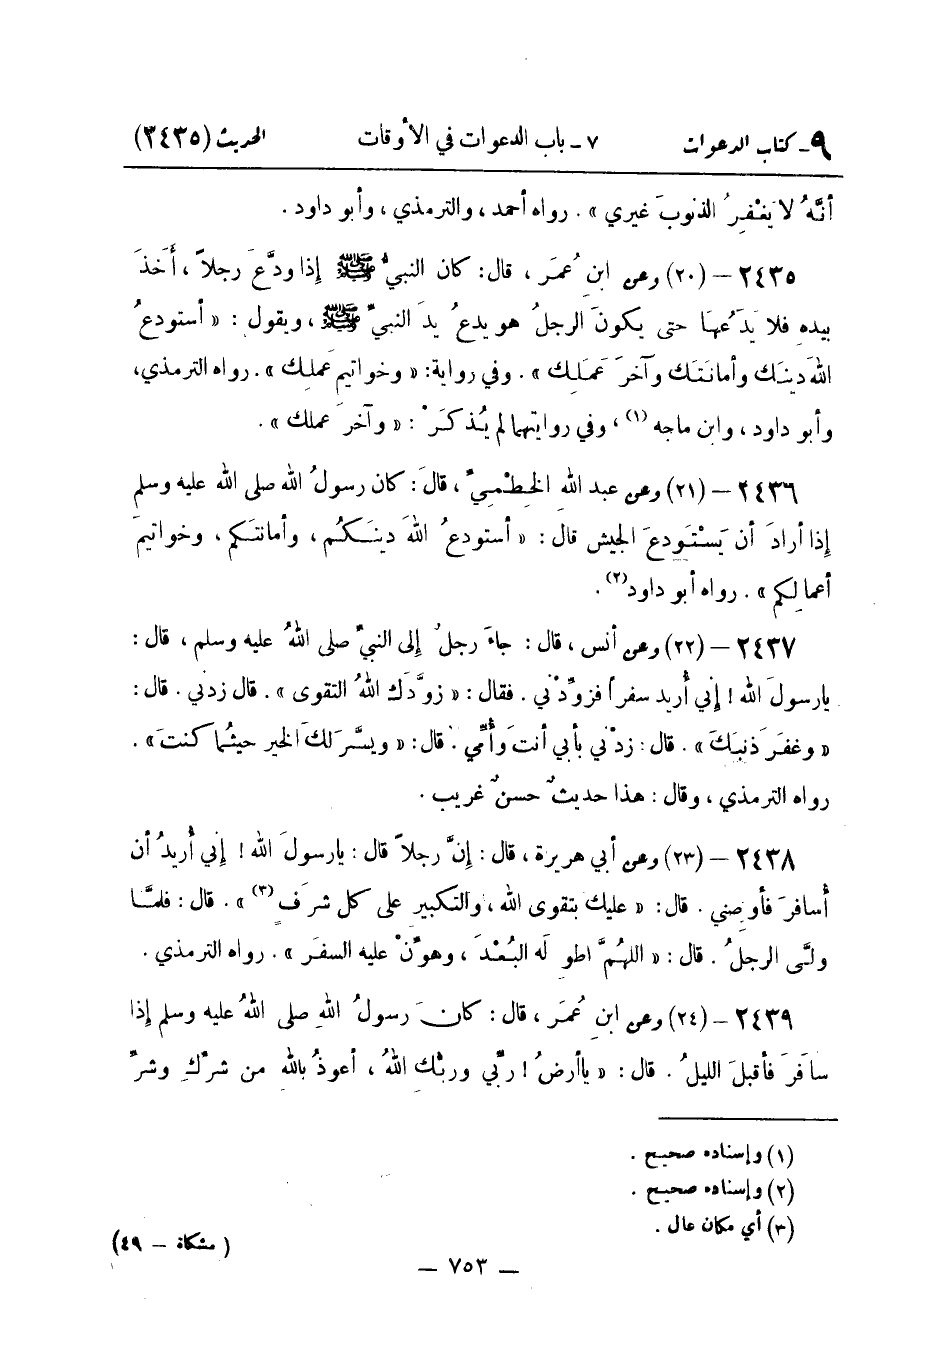 ٩ـ كتاب الدعوات ٧ ـ باب الدعوات في الأوقات الحديث (٢٤٣٥)
أنَّهُ لا يَغْفِرُ الذنوبَ غيري » . رواه أحمد ، والترمذي ، وأبو داود .
٢٤٣٥ – (٢٠) وعن ابنِ عُمَرَ ، قال : كان النبيُّ ﷺ إذا ودَّعَ رجلاً ، أَخذَ
بيدِهِ فلا يَدَعُها حتى يكونَ الرجلُ هو يدعُ يدَ النبيِّ ﷺ ، ويقول : « أستودعُ
اللهَ دينَك وأمانَتَك وآخرَ عَمَلِك » . وفي رواية : « وخواتيمَ عملِك » . رواه الترمذي ،
وأبو داود ، وابن ماجه (١) ، وفي روايتهما لم يُذكَرْ : « وآخرَ عملك » .
٢٤٣٦ – (٢١) وعن عبد اللهِ الخِطْميِّ ، قالَ : كان رسولُ الله صلى الله عليه وسلم
إذا أرادَ أن يَسْتَودِعَ الجيش قال : « أستودعُ اللهَ دينَكُم ، وأمانتَكم ، وخواتيمَ
أعمالِكم » . رواه أبو داود (٢) .
٢٤٣٧ – (٢٢) وعن أنس ، قال : جاءَ رجلٌ إلى النبيِّ صلى اللهُ عليه وسلم ، قال :
يارسولَ الله ! إنِّي أُريد سفراً فزوِّدْني . فقال : « زوَّدَك اللهُ التقوى » . قال زدني . قال :
« وغفرَ ذنبَكَ » . قال : زدْني بأبي أنتَ وأُمِّي . قال : « ويسَّرَ لكَ الخير حيثُما كنتَ » .
رواه الترمذي ، وقال : هذا حديثٌ حسنٌ غريب .
٢٤٣٨ – (٢٣) وعن أبي هريرة ، قال : إنَّ رجلاً قال : يارسولَ الله ! إني أُريدُ أن
أُسافرَ فأوصِني . قال : « عليك بتقوى الله ، والتكبير على كل شرَفٍ (٣) » . قال : فلمَّا
ولَّى الرجلُ . قال : « اللهُمَّ اطوِ له البُعْدَ ، وهوِّنْ عليه السفَر » . رواه الترمذي .
٢٤٣٩ – (٢٤) وعن ابنِ عُمَرَ ، قال : كانَ رسولُ اللهِ صلى اللهُ عليه وسلم إذا
سافَرَ فأقبلَ الليلُ . قال : « ياأرضُ ! ربِّي وربُّكِ اللهُ ، أعوذُ باللهِ من شرِّكِ وشرِّ
(١) وإسناده صحيح .
(٢) وإسناده صحيح .
(٣) أي مكان عال .
( مشكاة – ٤٩)
– ٧٥٣ –